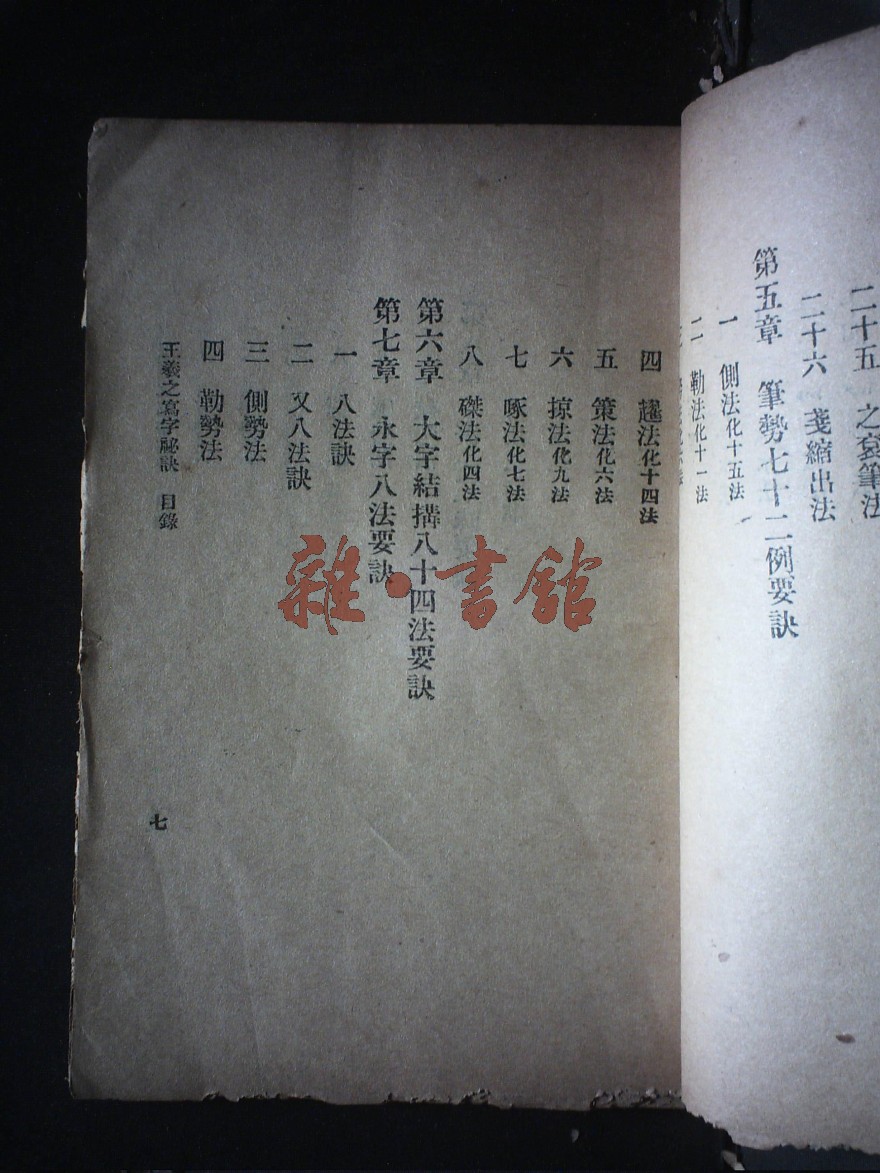 二十五　之 筆法
二十六　戔縮出法
第五章　筆勢七十二例要訣
一　側法化十五法
二　勒法化十一法
四　趯法化十四法
五　策法化六法
六　掠法化九法
七　啄法化七法
八　磔法化四法
第六章　大字結搆八十四法要訣
第七章　永字八法要訣
一　八法訣
二　又八法訣
三　側勢法
四　勒勢法
王羲之寫字祕訣　目錄
七
雜·書館